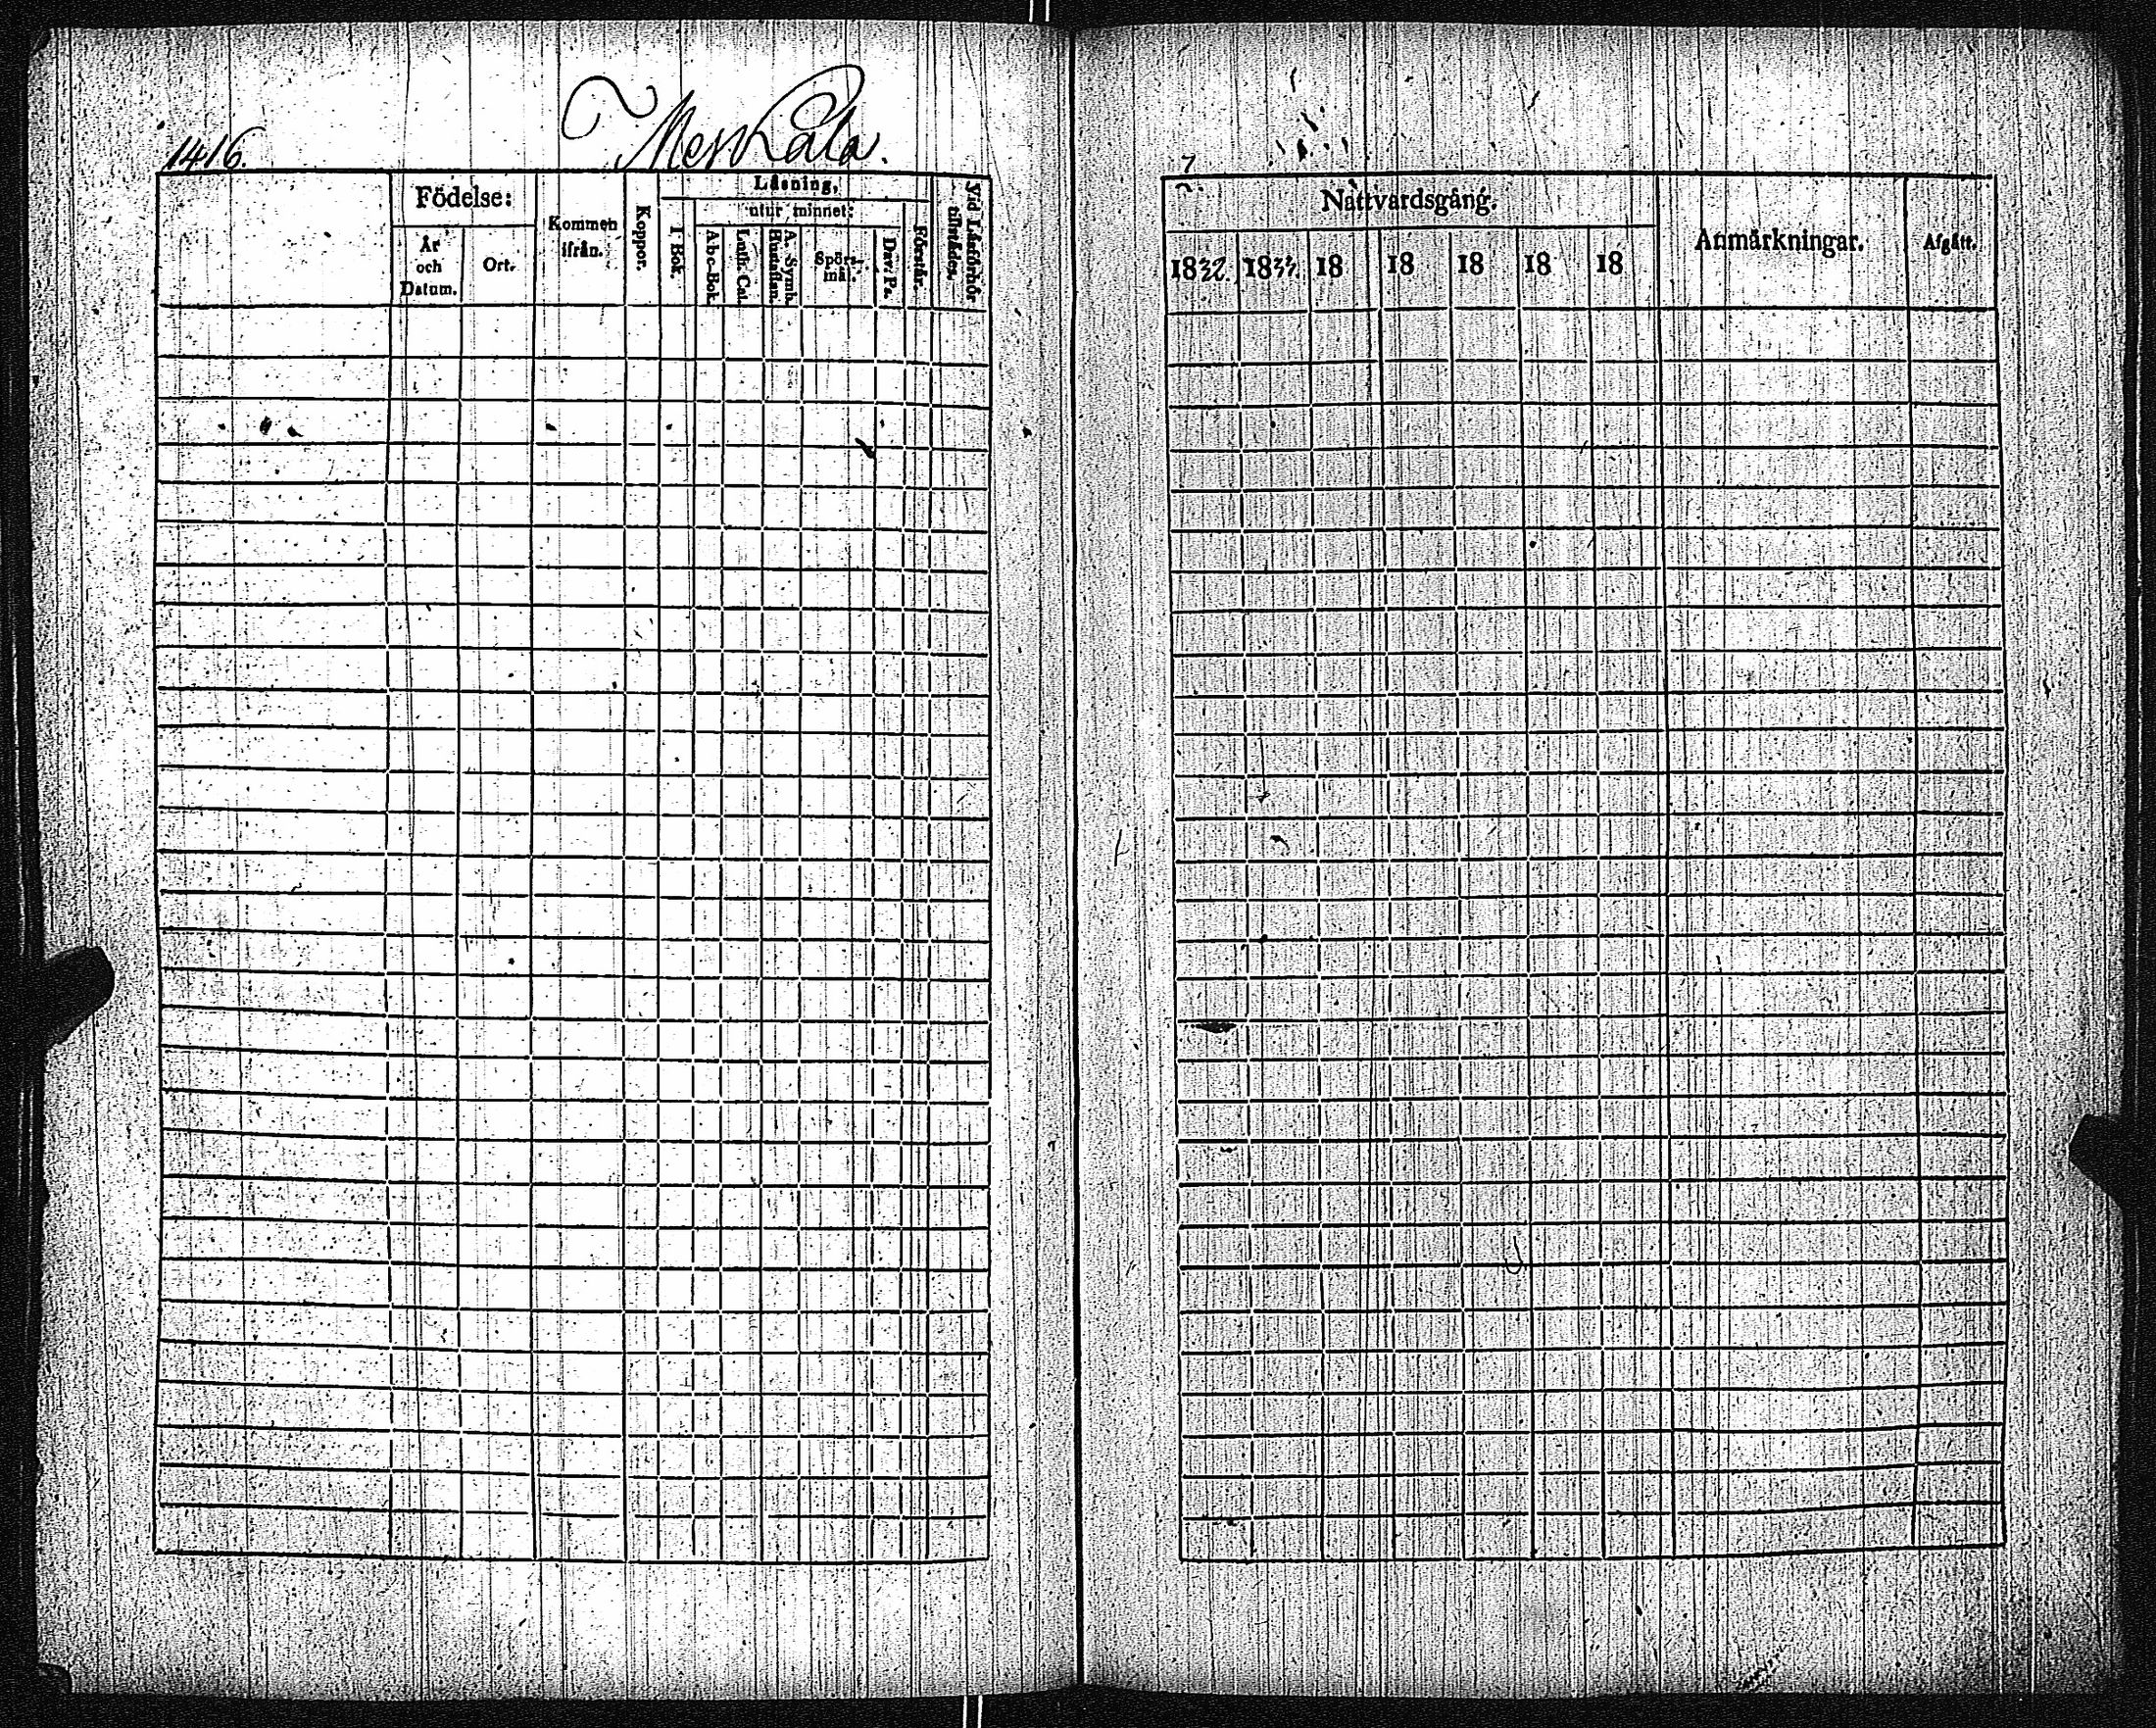 1416.
Födelse:
År och Datum.
Ort.
Kommen ifrån.
Koppor.
Läsning,
I Bok.
utur minnet:
Abc-Bok.
Luth. Cat.
A. Symb. Hustaflan.
Spörs-mål.
Dav. Ps.
Förstår.
Vid Läsförhör tillstädes.
Nattvardsgång.
1832. 1833. 18 18 18 18 18
Anmärkningar.
Afgått.